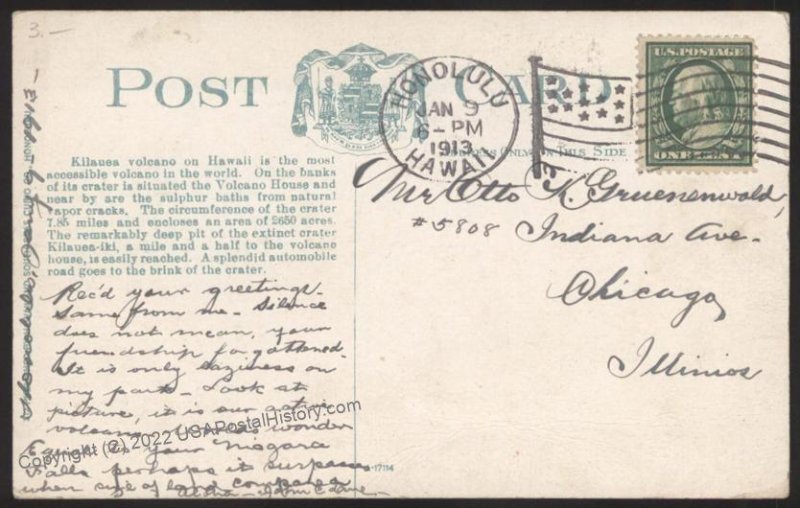 3.—
POST CARD
HONOLULU
JAN 9
6-PM
1913
HAWAII
U.S. POSTAGE
ONE CENT
ADDRESS ONLY ON THIS SIDE
Kilauea volcano on Hawaii is the most
accessible volcano in the world. On the banks
of its crater is situated the Volcano House and
near by are the sulphur baths from natural
vapor cracks. The circumference of the crater
7.85 miles and encloses an area of 2650 acres.
The remarkably deep pit of the extinct crater
Kilauea-iki, a mile and a half to the volcano
house, is easily reached. A splendid automobile
road goes to the brink of the crater.
Mr Otto K. Gruenenwald,
#5808 Indiana Ave-
Chicago,
Illinios
Rec'd your greetings-
Same from me- Silence
does not mean, your
friendship forgattened-
It is only laziness on
my part- Look at
picture, it is our native
volcano
wonder
your Niagara
Falls perhaps it surpasses
when size of land compared
Copyright (C) 2022 USAPostalHistory.com
-17114